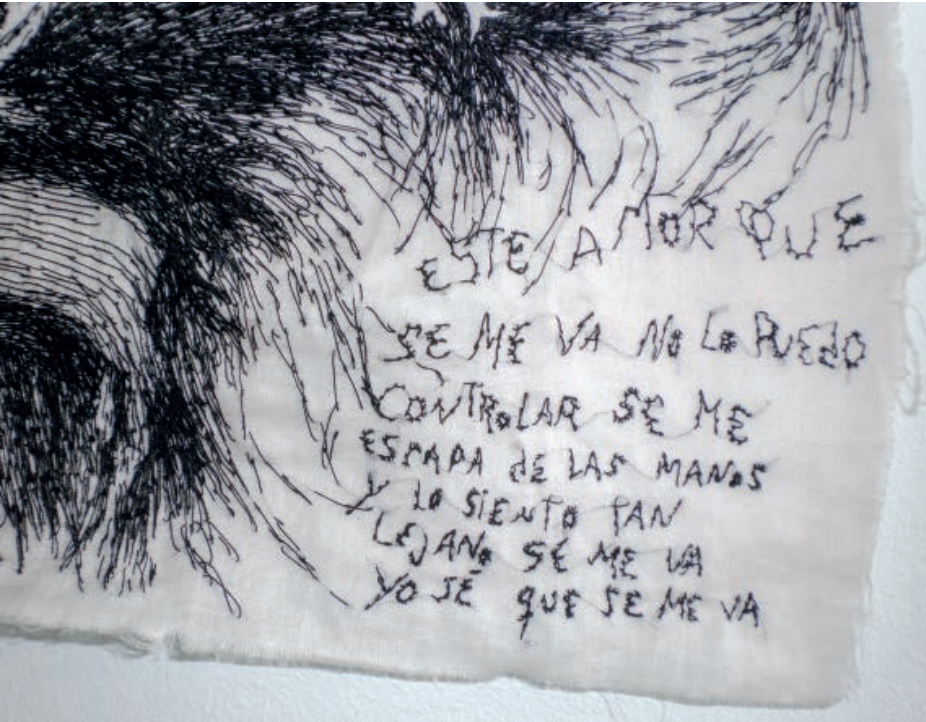 ESTE AMOR QUE
SE ME VA NO LO PUEDO
CONTROLAR SE ME
ESPAPA DE LAS MANOS
Y LO SIENTO TAN
LEJANO SE ME VA
YO SÉ QUE SE ME VA